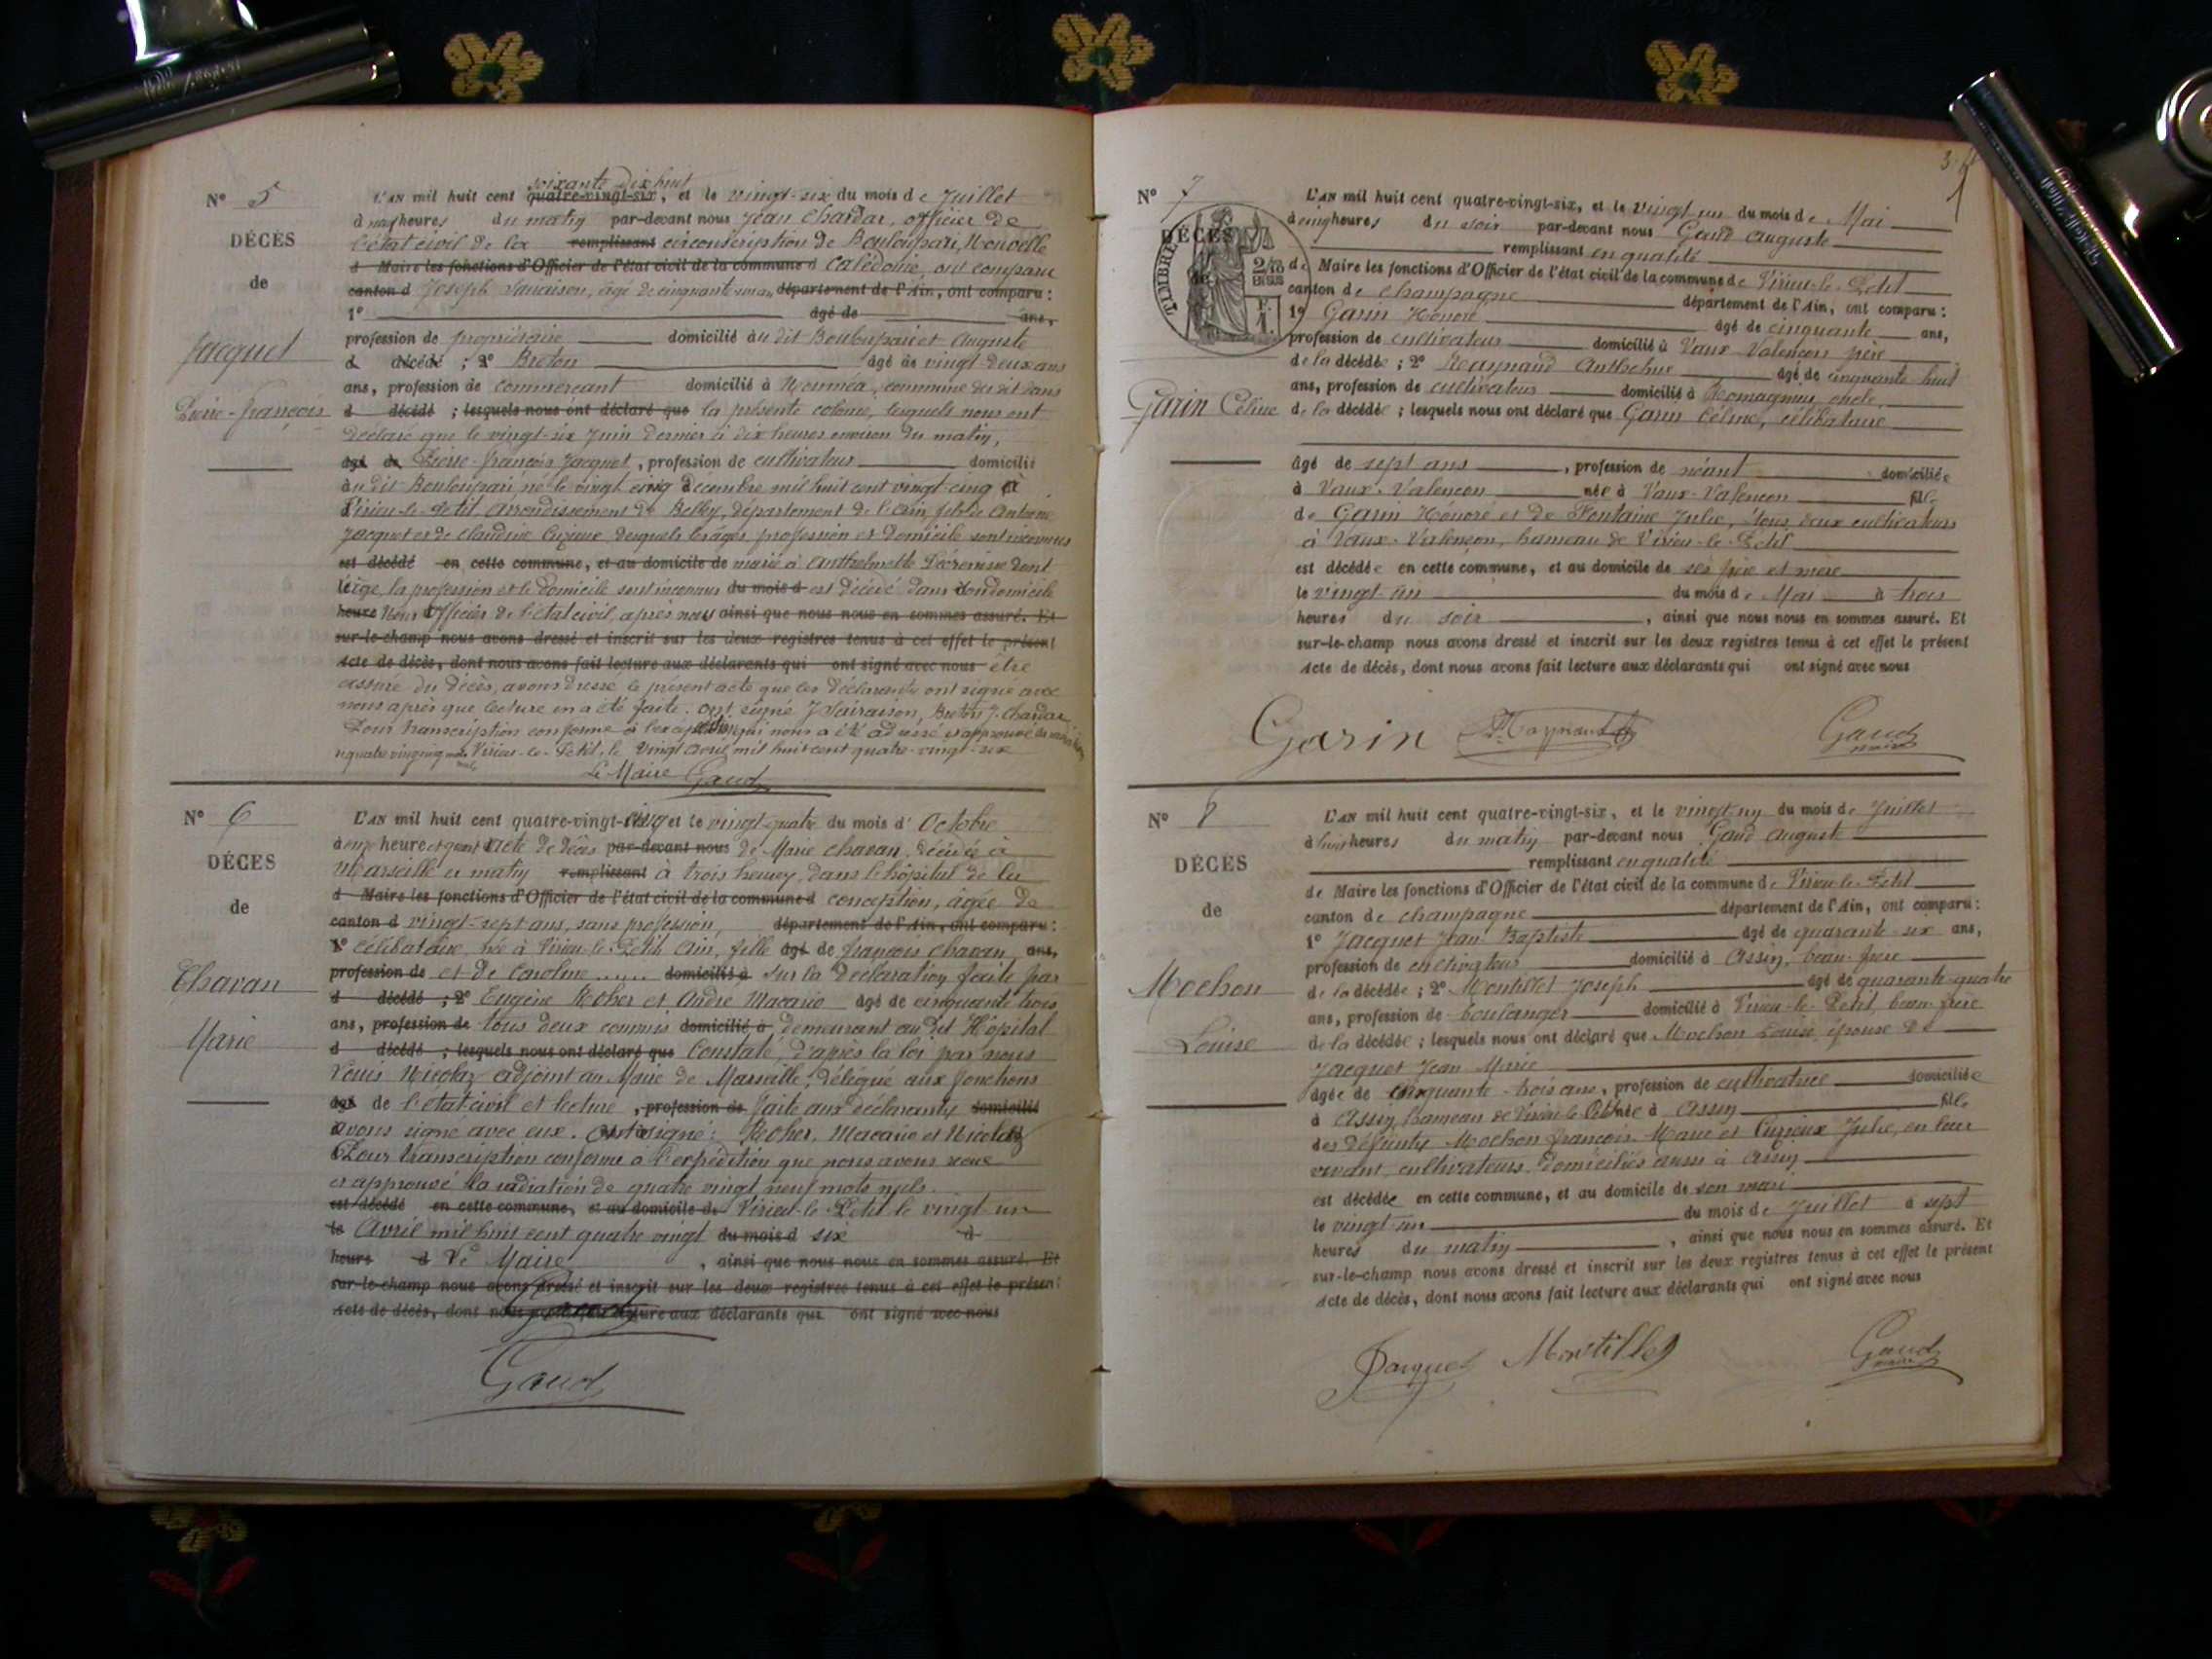 N° 5
DÉCÈS
de
Jacquet
Pierre-françois
soixante Dix huit
L'AN mil huit cent quatre-vingt-six, et le vingt-six du mois de Juillet
à neuf heures du matin par-devant nous Jean Chardar, officier de
l'état civil de la remplissant circonscription de Bouloupari, Nouvelle
d Maire les fonctions d'Officier de l'état civil de la commune d Calédonie, ont comparu
canton d Joseph âgé de cinquante un an département de l'Ain, ont comparu :
1° âgé de ans,
profession de propriétaire domicilié au dit Bouloupari et Auguste
d décédé ; 2° Breton âgé de vingt-deux ans
ans, profession de commerçant domicilié à Nouméa, commune du dit dans
d décédé ; lesquels nous ont déclaré que la présente colonie, lesquels nous ont
déclaré que le vingt-six Juin dernier à dix heures environ du matin,
âgé de Pierre-françois Jacquet, profession de cultivateur domicilié
au dit Bouloupari, né le vingt cinq décembre mil huit cent vingt-cinq à
Virieu-le-Petit arrondissement de Belley, département de l'ain, fils de Antoine
Jacquet et de Claudine Cuzieux desquels les âges profession et domicile sont inconnus
est décédé en cette commune, et au domicile de marié à Anthelmette dont
l'âge, la profession et le domicile sont inconnus du mois d est décédé dans son domicile
heure Nous Officier de l'état civil, après nous ainsi que nous nous en sommes assuré. Et
sur-le-champ nous avons dressé et inscrit sur les deux registres tenus à cet effet le présent
acte de décès, dont nous avons fait lecture aux déclarants qui ont signé avec nous être
assuré du décès, avons dressé le présent acte que les déclarants ont signé avec
nous après que lecture en a été faite. ont signé J Breton, J. Chardar
Pour transcription conforme à l'expédition qui nous a été adressé et approuvé
Virieu-le-Petit, le vingt avril mil huit cent quatre-vingt-six
Le Maire Gaud
N° 6
DÉCES
de
Chavan
Marie
L'AN mil huit cent quatre-vingt-cinq et le vingt-quatre du mois d' Octobre
à onze heures et quart acte de décès par-devant nous de Marie Chavan, décédée à
Marseille ce matin remplissant à trois heures, dans l'hôpital de la
d Maire les fonctions d'Officier de l'état civil de la commune d conception, âgée de
canton d vingt-sept ans, sans profession, département de l'Ain, ont comparu :
1° célibataire, née à Virieu-le-Petit Ain, fille âgé de françois Chavan, ans,
profession de et de Caroline ...... domicilié à sur la déclaration faite par
d décédé ; 2° Eugène Roher et André Macario âgé de cinquante trois
ans, profession de tous deux commis domicilié à demeurant au dit Hôpital
d décédé ; lesquels nous ont déclaré que Constaté, d'après la loi par nous
Louis Nicolaz adjoint au Maire de Marseille, délégué aux fonctions
âgé de l'état civil et lecture , profession de faite aux déclarants domicilié
avons signé avec eux. ont signé : Roher, Macario et Nicolaz
Pour transcription conforme à l'expédition que nous avons reçue
et approuvé la radiation de quatre vingt neuf mots nuls.
est décédé en cette commune, et au domicile de Virieu-le-Petit le vingt-un
le Avril mil huit cent quatre vingt du mois d six à
heure d Le Maire , ainsi que nous nous en sommes assuré. Et
sur-le-champ nous avons dressé et inscrit sur les deux registres tenus à cet effet le présent
acte de décès, dont nous avons fait lecture aux déclarants qui ont signé avec nous
Gaud
N° 7
DÉCÈS
de
TIMBRE
2/10
EN SUS
F.
1.
Garin Céline
L'AN mil huit cent quatre-vingt-six, et le vingt un du mois de Mai
à cinq heures du soir par-devant nous Gaud Auguste
remplissant en qualité
de Maire les fonctions d'Officier de l'état civil de la commune de Virieu-le-Petit
canton de Champagne département de l'Ain, ont comparu :
1° Garin Honoré âgé de cinquante ans,
profession de cultivateur domicilié à Vaux-Valençon père
de la décédée ; 2° Raynaud Anthelme âgé de cinquante huit
ans, profession de cultivateur domicilié à Romagnieu oncle
de la décédée ; lesquels nous ont déclaré que Garin Céline, célibataire
âgé de sept ans , profession de néant domiciliée
à Vaux-Valençon née à Vaux-Valençon fille
de Garin Honoré et de Fontaine Julie, tous deux cultivateurs
à Vaux-Valençon, hameau de Virieu-le-Petit
est décédée en cette commune, et au domicile de ses père et mère
le vingt-un du mois de Mai à trois
heures du soir , ainsi que nous nous en sommes assuré. Et
sur-le-champ nous avons dressé et inscrit sur les deux registres tenus à cet effet le présent
acte de décès, dont nous avons fait lecture aux déclarants qui ont signé avec nous
Garin Raynaud Gaud
maire
N° 8
DÉCÈS
de
Mochon
Louise
L'AN mil huit cent quatre-vingt-six, et le vingt-un du mois de Juillet
à huit heures du matin par-devant nous Gaud Auguste
remplissant en qualité
de Maire les fonctions d'Officier de l'état civil de la commune de Virieu-le-Petit
canton de Champagne département de l'Ain, ont comparu :
1° Jacquet Jean Baptiste âgé de quarante-six ans,
profession de cultivateur domicilié à Assin, beau-frère
de la décédée ; 2° Montillet Joseph âgé de quarante-quatre
ans, profession de boulanger domicilié à Virieu-le-Petit, beau-frère
de la décédée ; lesquels nous ont déclaré que Mochon Louise, épouse de
Jacquet Jean Marie
âgée de cinquante-trois ans, profession de cultivatrice domiciliée
à Assin, hameau de Virieu-le-Petit née à Assin fille
des défunts Mochon françois-Marie et Cuzieux Julie, en leur
vivant, cultivateurs domiciliés aussi à Assin
est décédée en cette commune, et au domicile de son mari
le vingt-un du mois de Juillet à sept
heures du matin , ainsi que nous nous en sommes assuré. Et
sur-le-champ nous avons dressé et inscrit sur les deux registres tenus à cet effet le présent
acte de décès, dont nous avons fait lecture aux déclarants qui ont signé avec nous
Jacquet Montillet Gaud
maire